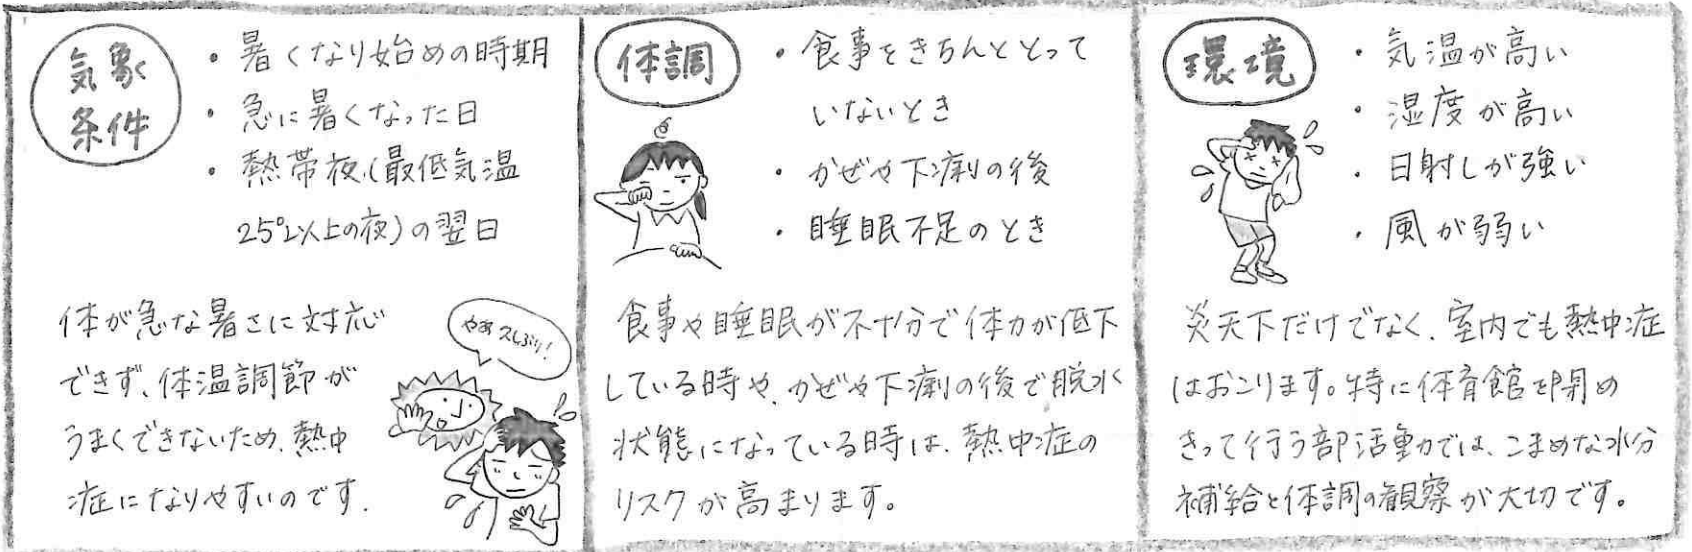 気象
条件
・暑くなり始めの時期
・急に暑くなった日
・熱帯夜(最低気温
25℃以上の夜)の翌日
体が急な暑さに対応
できず、体温調節が
うまくできないため、熱中
症になりやすいのです.
やあ 久しぶり!
体調
・食事をきちんととって
いないとき
・かぜや下痢の後
・睡眠不足のとき
食事や睡眠が不十分で体力が低下
している時や、かぜや下痢の後で脱水
状態になっている時は、熱中症の
リスクが高まります。
環境
・気温が高い
・湿度が高い
・日射しが強い
・風が弱い
炎天下だけでなく、室内でも熱中症
はおこります。特に体育館を閉め
きって行う部活動では、こまめな水分
補給と体調の観察が大切です。